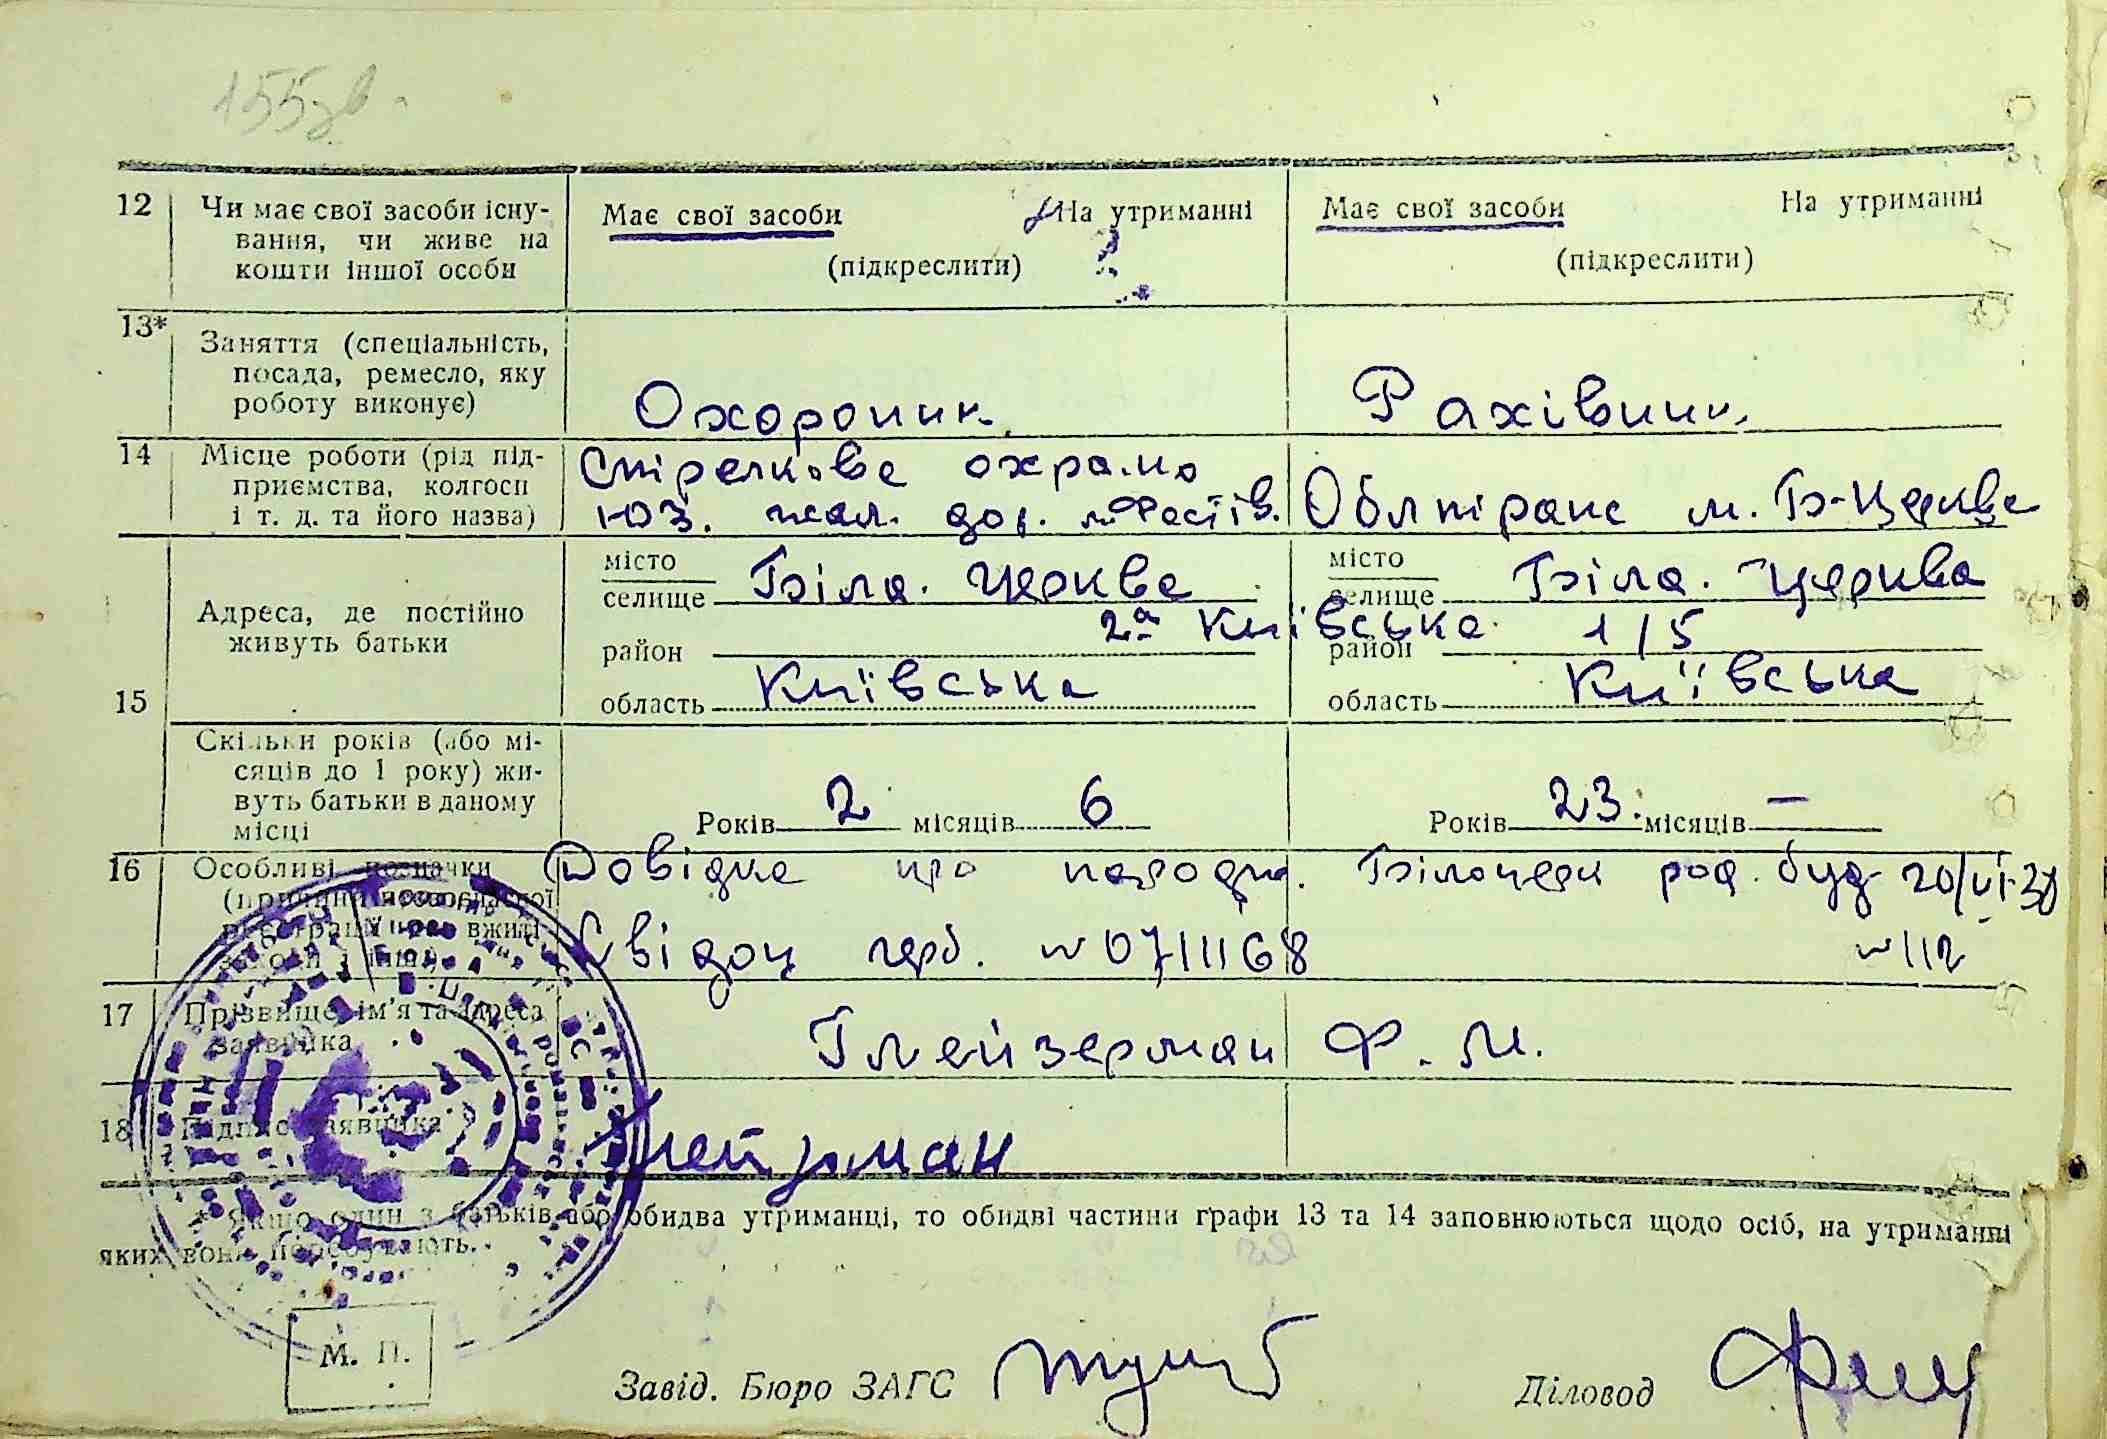 155зв.
12 Чи має свої засоби існу-
вання, чи живе на
кошти іншої особи
Має свої засоби На утриманні
(підкреслити)
Має свої засоби На утриманні
(підкреслити)
13* Заняття (спеціальність,
посада, ремесло, яку
роботу виконує)
Охоронник
Рахівник
14 Місце роботи (рід під-
приємства, колгосп
і т. д. та його назва)
Стрелкова охрана
ЮЗ. жел. дор. м. Фастів.
Облтранс м. Б-Церква
15 Адреса, де постійно
живуть батьки
місто
селище Біла. Церква
район
область Київська
2а Київська 1/5
місто
селище Біла. Церква
район
область Київська
Скільки років (або мі-
сяців до 1 року) жи-
вуть батьки в даному
місці
Років 2 місяців 6
Років 23. місяців —
16 Особливі позначки
Довідка про народж. Білоцерк род. буд. 20/VI-39
Свідоц герб. № 071168 № 112
17 Прізвище, ім'я та адреса
заявника
Глейзерман Ф. М.
18 Підпис заявника
* Якщо один з батьків або обидва утриманці, то обидві частини графи 13 та 14 заповнюються щодо осіб, на утриманні
яких вони перебувають.
М. П.
Завід. Бюро ЗАГС
Діловод